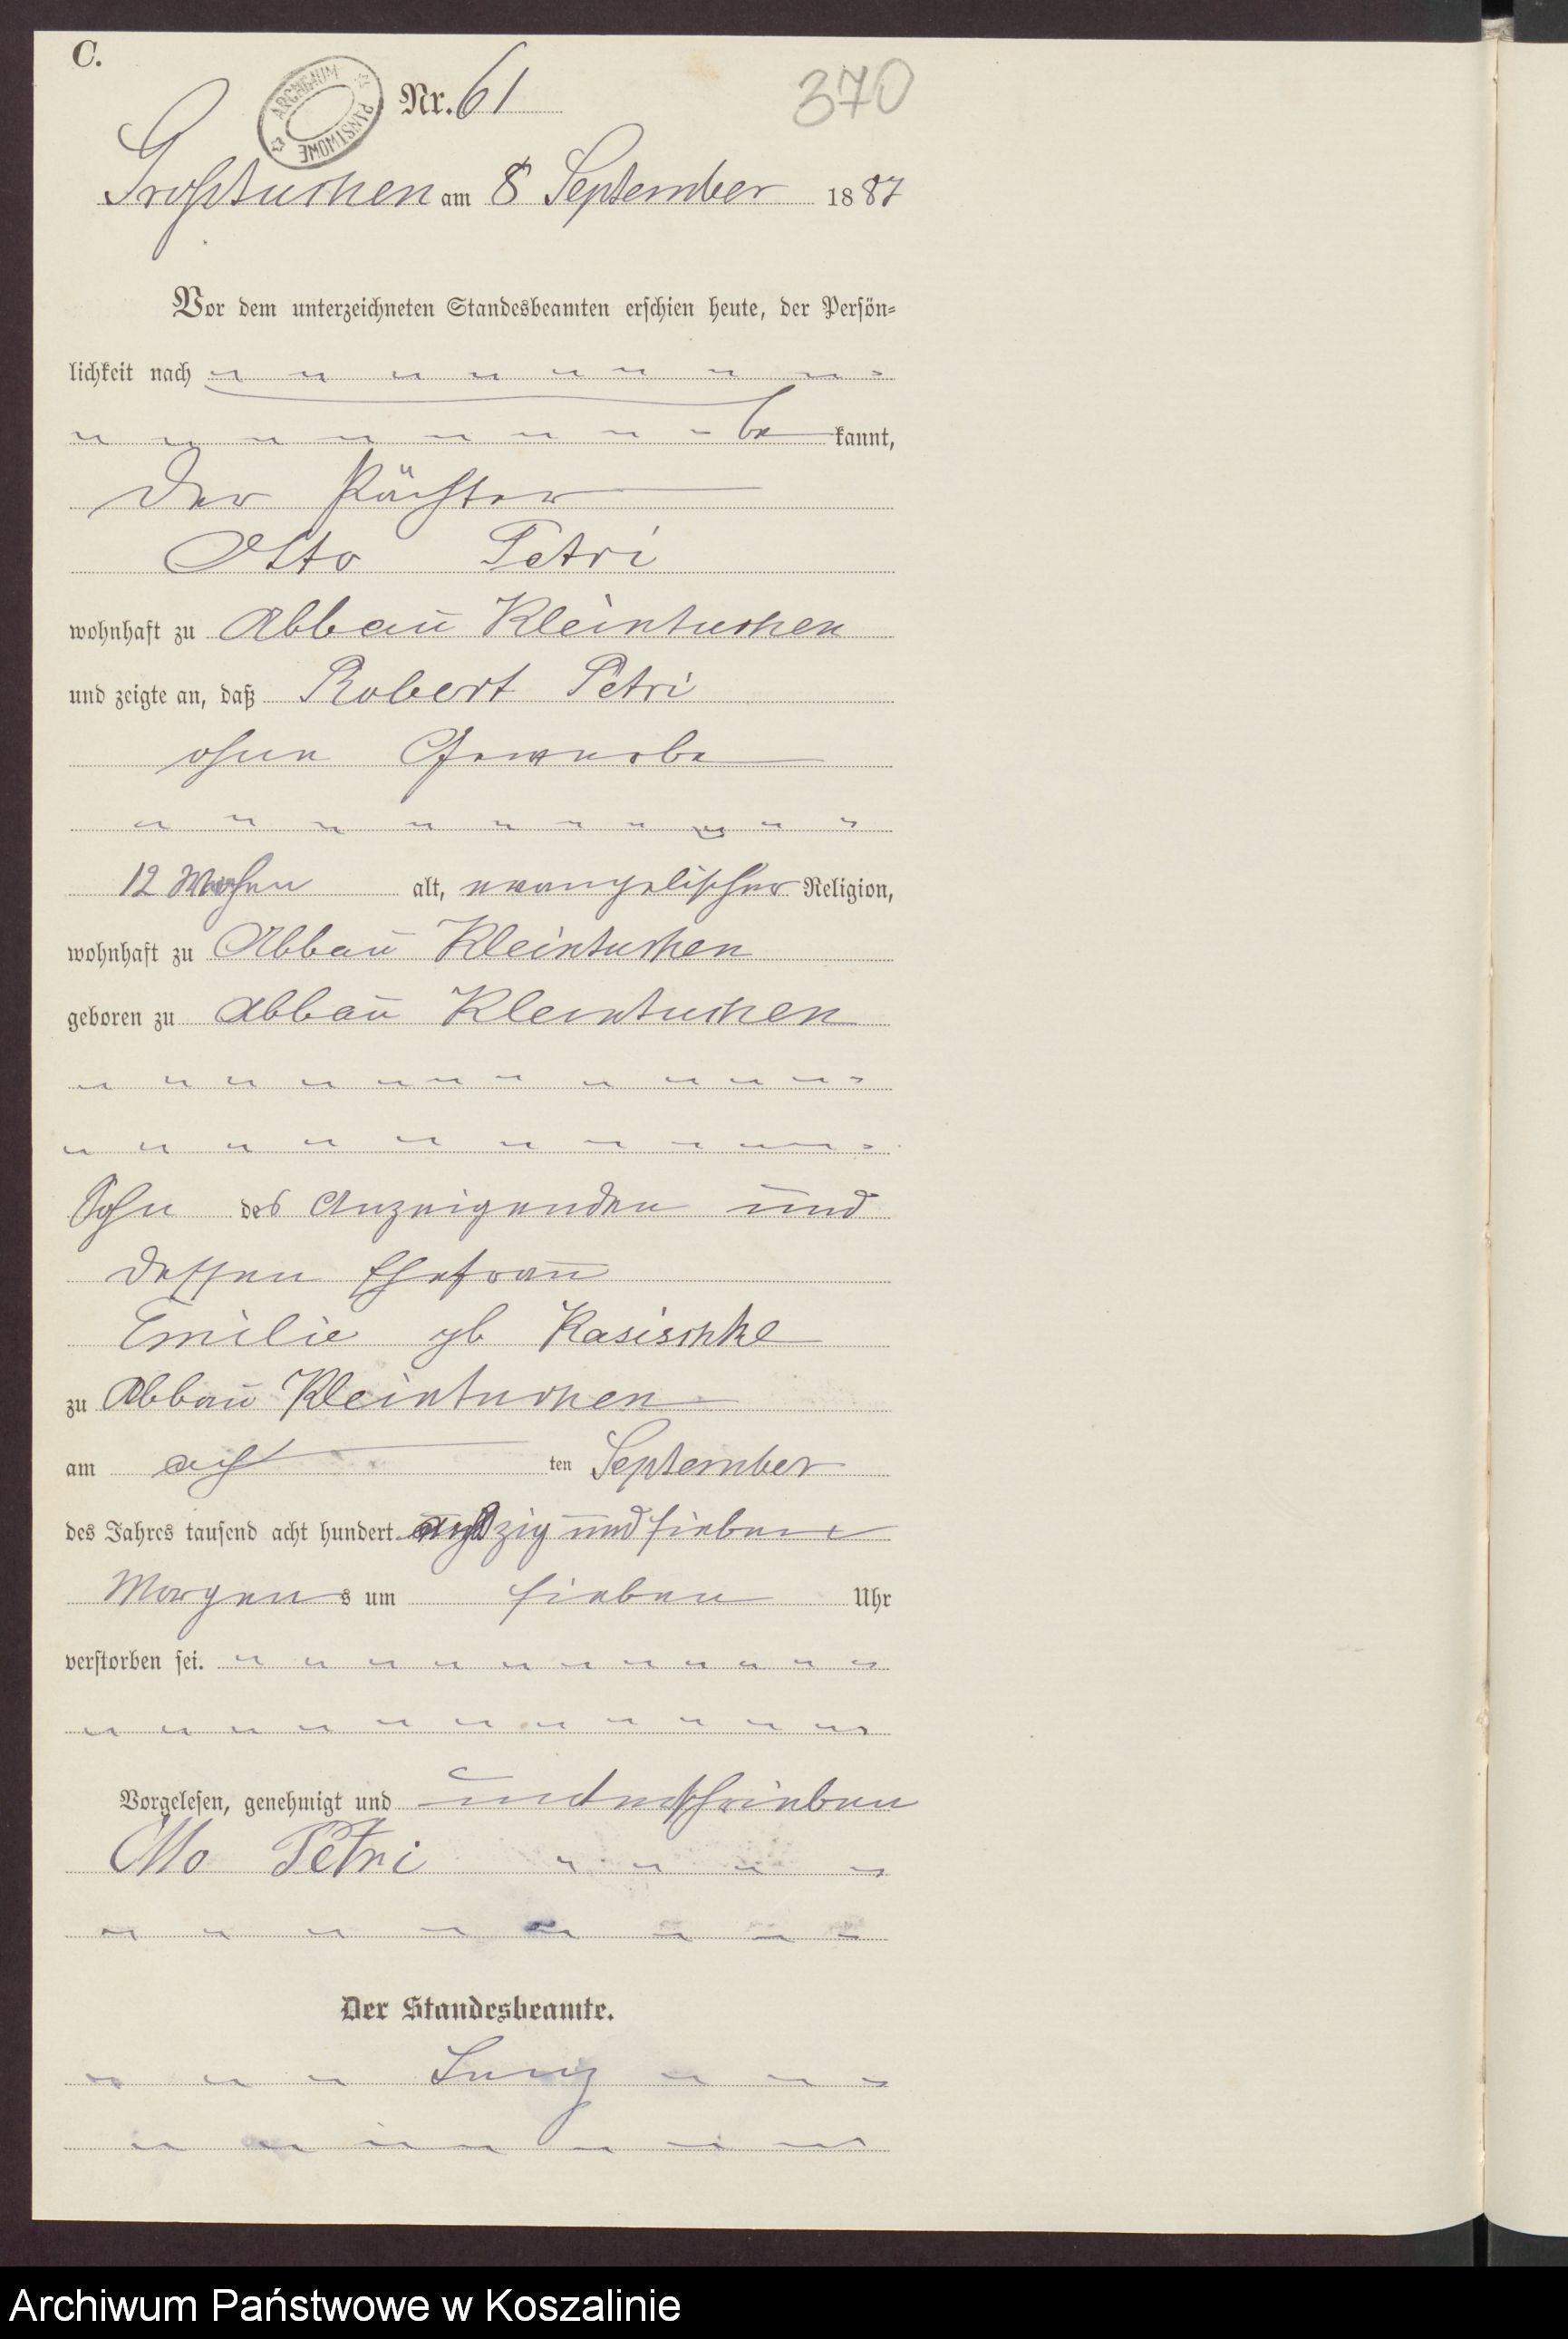 C.
ARCHIWUM PAŃSTWOWE
Nr. 61
370
Großtuchen am 8 September 1887
Vor dem unterzeichneten Standesbeamten erschien heute, der Persön-
lichkeit nach
be kannt,
der Pächter
Otto Petri
wohnhaft zu Abbau Kleintuchen
und zeigte an, daß Robert Petri
ohne Gewerbe
12 Wochen alt, evangelischer Religion,
wohnhaft zu Abbau Kleintuchen
geboren zu Abbau Kleintuchen
Sohn des Anzeigenden und
dessen Ehefrau
Emilie gb Kasischke
zu Abbau Kleintuchen
am acht ten September
des Jahres tausend acht hundert achtzig und sieben
Morgens um sieben Uhr
verstorben sei.
Vorgelesen, genehmigt und unterschrieben
Otto Petri
Der Standesbeamte.
Archiwum Państwowe w Koszalinie